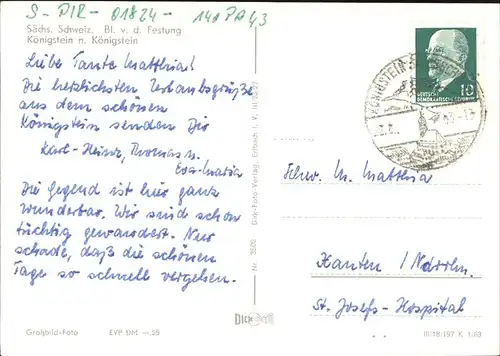 S-PIR-01824-140PA43
Sächs. Schweiz. Bl. v. d. Festung
Königstein n. Königstein
Liebe Tante Matthia!
Die herzlichsten Urlaubsgrüße
aus dem schönen
Königstein senden Dir
Karl-Heinz, Thomas u.
Eva-Maria
Die Gegend ist hier ganz
wunderbar. Wir sind schon
tüchtig gewandert. Nur
schade, daß die schönen
Tage so schnell vergehen.
Großbild-Foto EVP DM —.25
Dick-Foto-Verlag, Erlbach i. V.
Nr.
DICK
10
DEUTSCHE
DEMOKRATISCHE
KÖNIGSTEIN
Schw. M. Matthia
Xanten / Ndrrhn.
St. Josefs-Hospital
III/18/197 K 1/63